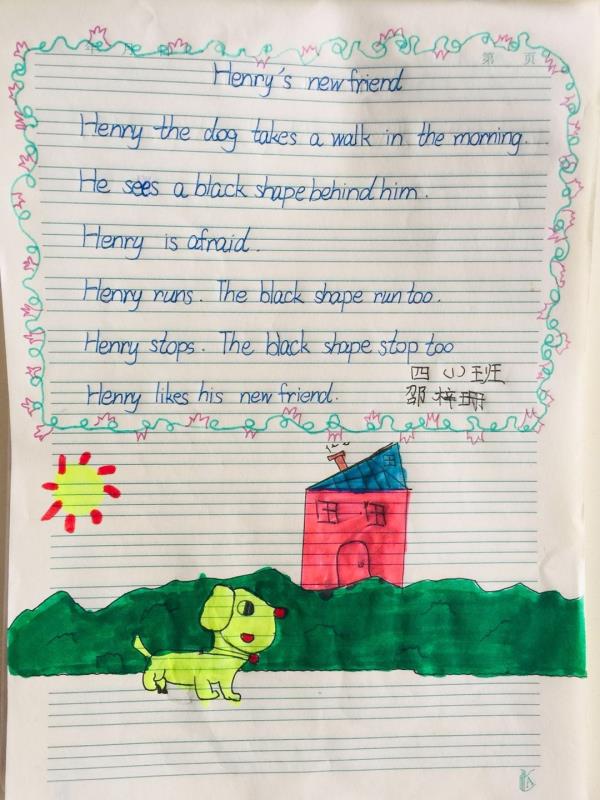 第 页
Henry's new friend
Henry the dog takes a walk in the morning.
He sees a black shape behind him.
Henry is afraid.
Henry runs. The black shape run too.
Henry stops. The black shape stop too
四（1）班
Henry likes his new friend.
邵梓珊